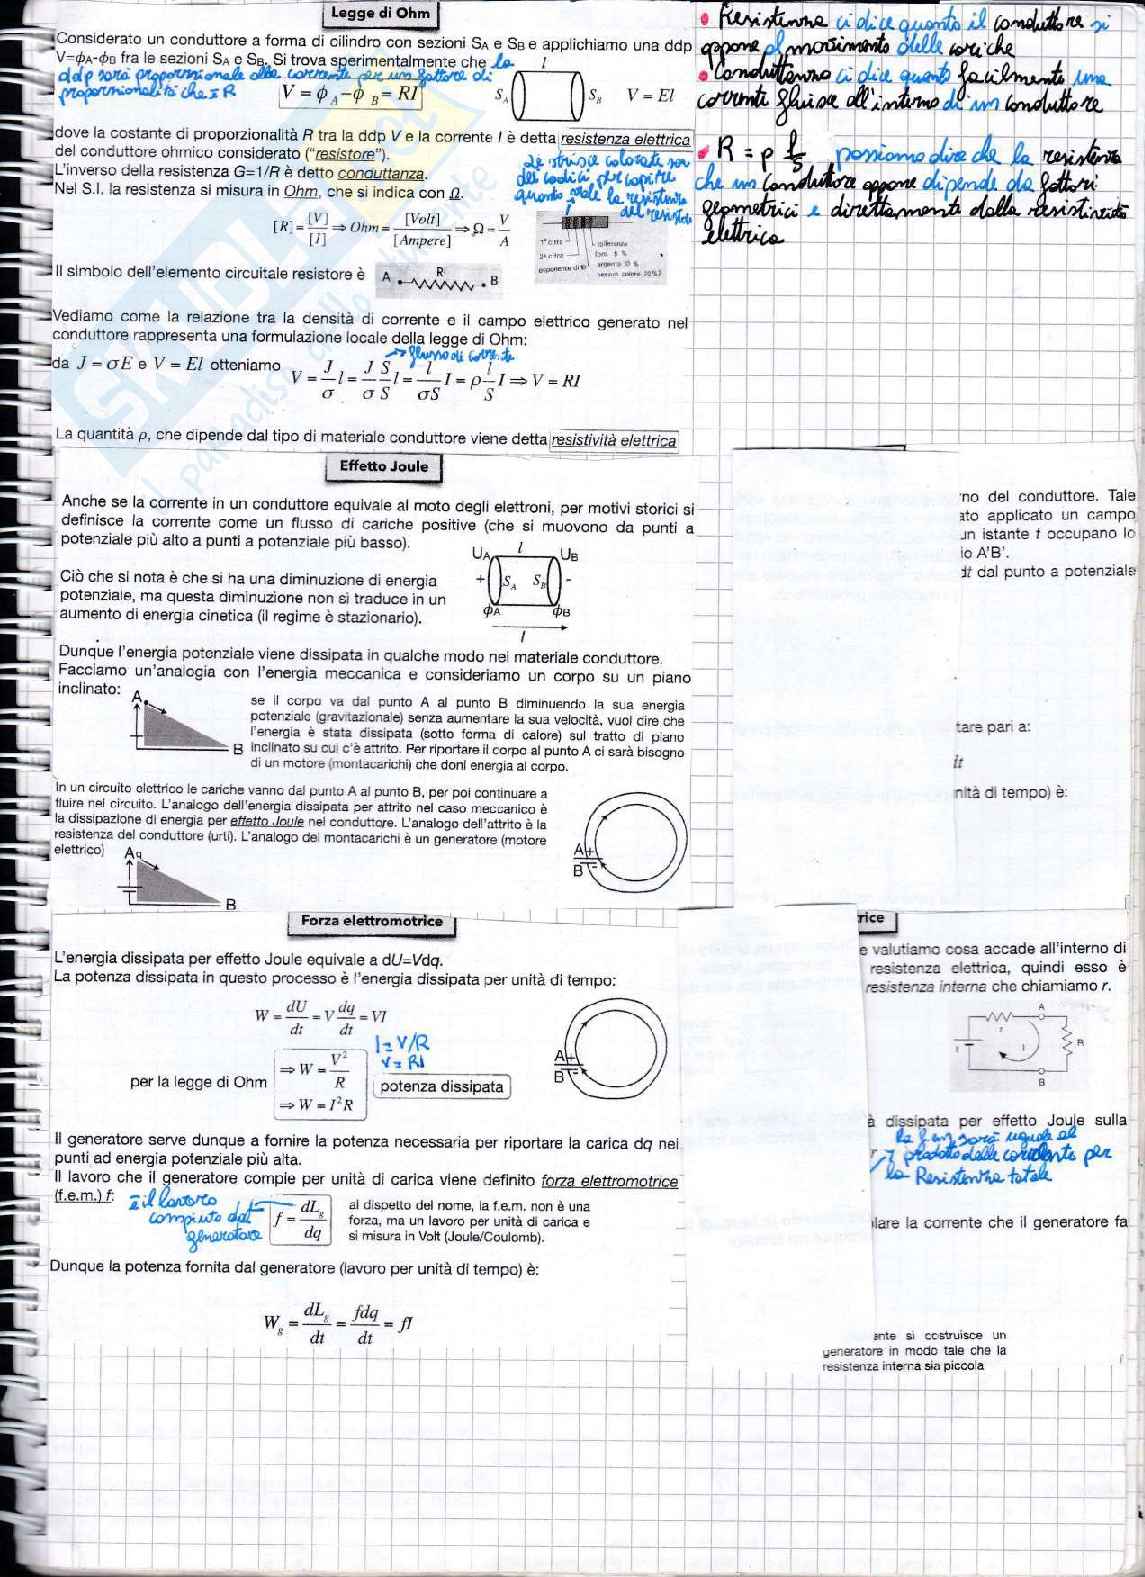 Legge di Ohm
Considerato un conduttore a forma di cilindro con sezioni SA e SB e applichiamo una ddp
V=ϕA-ϕB fra le sezioni SA e SB. Si trova sperimentalmente che la
ddp sarà proporzionale alla corrente per un fattore di
proporzionalità che è R
V = ϕA - ϕB = RI
l
SA SB V = El
dove la costante di proporzionalità R tra la ddp V e la corrente I è detta resistenza elettrica
del conduttore ohmico considerato ("resistore").
L'inverso della resistenza G=1/R è detto conduttanza.
Nel S.I. la resistenza si misura in Ohm, che si indica con Ω.
le striscie colorate son
dei codici per capire
quanto vale la resistenza
del resistore
[R] = [V]/[I] ⇒ Ohm = [Volt]/[Ampere] ⇒ Ω = V/A
1ª cifra
2ª cifra
esponente di 10
tolleranza
oro 5 %
argento 10 %
nessun colore 20%
Il simbolo dell'elemento circuitale resistore è
A R B
Vediamo come la relazione tra la densità di corrente e il campo elettrico generato nel
conduttore rappresenta una formulazione locale della legge di Ohm:
→ flusso di corrente
da J = σE e V = El otteniamo V = J/σ l = J/σ S/S l = l/σS I = ρ l/S I ⇒ V = RI
La quantità ρ, che dipende dal tipo di materiale conduttore viene detta resistività elettrica
• Resistenza ci dice quanto il conduttore si
oppone al movimento delle cariche
• Conduttanza ci dice quanto facilmente una
corrente fluisce all'interno di un conduttore
• R = ρ l/S, possiamo dire che la resistenza
che un conduttore oppone dipende da fattori
geometrici e direttamente dalla resistività
elettrica
Effetto Joule
Anche se la corrente in un conduttore equivale al moto degli elettroni, per motivi storici si
definisce la corrente come un flusso di cariche positive (che si muovono da punti a
potenziale più alto a punti a potenziale più basso).
UA l UB
+ SA SB -
ϕA ϕB
l
Ciò che si nota è che si ha una diminuzione di energia
potenziale, ma questa diminuzione non si traduce in un
aumento di energia cinetica (il regime è stazionario).
Dunque l'energia potenziale viene dissipata in qualche modo nel materiale conduttore.
Facciamo un'analogia con l'energia meccanica e consideriamo un corpo su un piano
inclinato:
A
B
se il corpo va dal punto A al punto B diminuendo la sua energia
potenziale (gravitazionale) senza aumentare la sua velocità, vuol dire che
l'energia è stata dissipata (sotto forma di calore) sul tratto di piano
inclinato su cui c'è attrito. Per riportare il corpo al punto A ci sarà bisogno
di un motore (montacarichi) che doni energia al corpo.
In un circuito elettrico le cariche vanno dal punto A al punto B, per poi continuare a
fluire nel circuito. L'analogo dell'energia dissipata per attrito nel caso meccanico è
la dissipazione di energia per effetto Joule nel conduttore. L'analogo dell'attrito è la
resistenza del conduttore (urti). L'analogo del montacarichi è un generatore (motore
elettrico)
Aq
B
A +
B -
no del conduttore. Tale
ato applicato un campo
un istante t occupano lo
io A'B'.
dt dal punto a potenziale
tare pari a:
dt
nità di tempo) è:
Forza elettromotrice
L'energia dissipata per effetto Joule equivale a dU=Vdq.
La potenza dissipata in questo processo è l'energia dissipata per unità di tempo:
W = dU/dt = V dq/dt = VI
I = V/R
V = RI
per la legge di Ohm
⇒ W = V²/R
⇒ W = I²R
potenza dissipata
A +
B -
Il generatore serve dunque a fornire la potenza necessaria per riportare la carica dq nei
punti ad energia potenziale più alta.
Il lavoro che il generatore compie per unità di carica viene definito forza elettromotrice
(f.e.m.) f:
è il lavoro
compiuto dal
generatore
f = dLg/dq
al dispetto del nome, la f.e.m. non è una
forza, ma un lavoro per unità di carica e
si misura in Volt (Joule/Coulomb).
Dunque la potenza fornita dal generatore (lavoro per unità di tempo) è:
Wg = dLg/dt = fdq/dt = fI
rice
e valutiamo cosa accade all'interno di
resistenza elettrica, quindi esso è
resistenza interna che chiamiamo r.
A
r
f I R
B
à dissipata per effetto Joule sulla
la fem sarà uguale al
prodotto della corrente per
la Resistenza totale
r
lare la corrente che il generatore fa
ente si costruisce un
generatore in modo tale che la
resistenza interna sia piccola